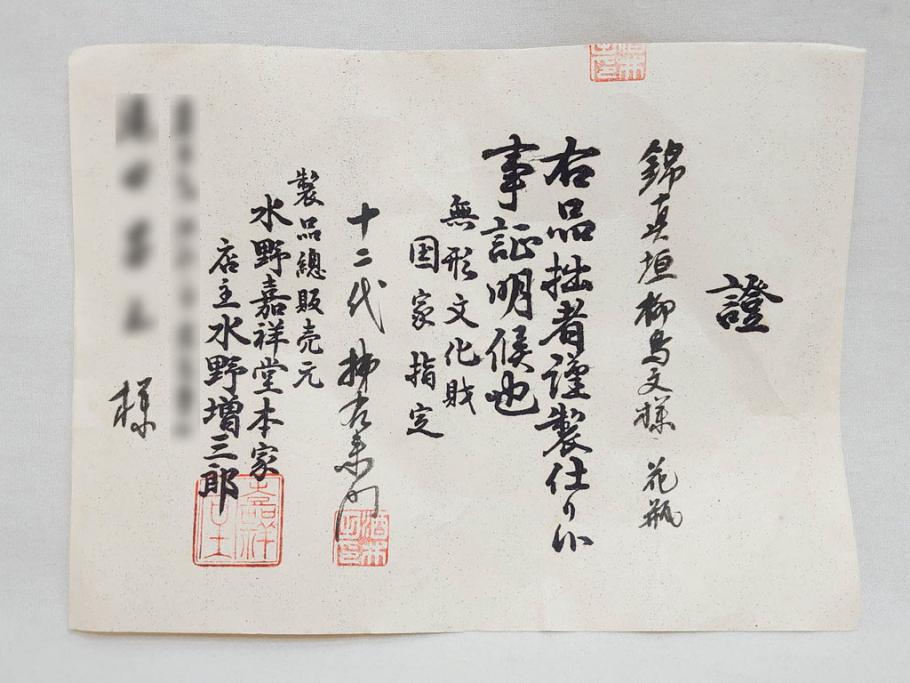 證
錦真垣柳鳥文様 花瓶
右品拙者謹製仕り候
事証明候也
無形文化財
国家指定
十二代 柿右衛門
製品總販売元
水野嘉祥堂本家
店主水野増三郎
様